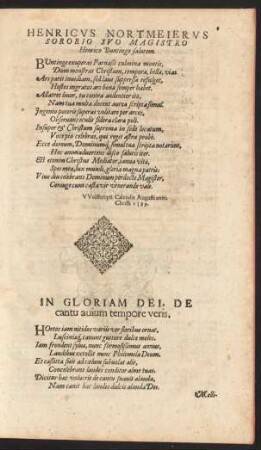 HENRICVS NORTMEIERVS
SORORIO SVO MAGISTRO
Henrico Buntingo salutem.
BUntinge superas Parnassi culmina montis,
Dum monstras Christum, tempora, bella, vias.
Ars parit invidiam, sed laus suppressa resurget,
Hostes ingratos ars bona semper habet.
Allatret livor, tu contra audentior ito,
Nam tua multa docent aurea scripta simul.
Ingenio poteris superas volitare per arces,
Observans oculis sidera clara poli.
Insuper & Christum suprema in sede locatum,
Vocepia celebras, qui regit astra probè.
Ecce domum, Dominumq́; simul tua scripta notarunt,
Hoc animadvertens disce salutis iter.
Est etenim Christus Mediator, janua vita,
Spes mea, lux mundi, gloria magna patris.
Vive diu celebrans Dominum perdocte Magister,
Conjuge cum casta vir venerande vale.
Calendis Augusti anno
Christi 1589.
IN GLORIAM DEI. DE
cantu avium tempore veris.
HOrtos iam nitidos variis ver floribus ornat,
Luscinia, canunt gutture dulce melos.
Iam frondent sylvæ, nunc
Laudibus extollit nunc Philomela Deum.
Et cassita suit ad cælum subvolat alis,
Concelebrans laudes conditor alme tuas.
Dicitur hæc volucris de cantu suavis alauda,
Nam canit hæc laudes dulcis alauda Dei.
Melli-